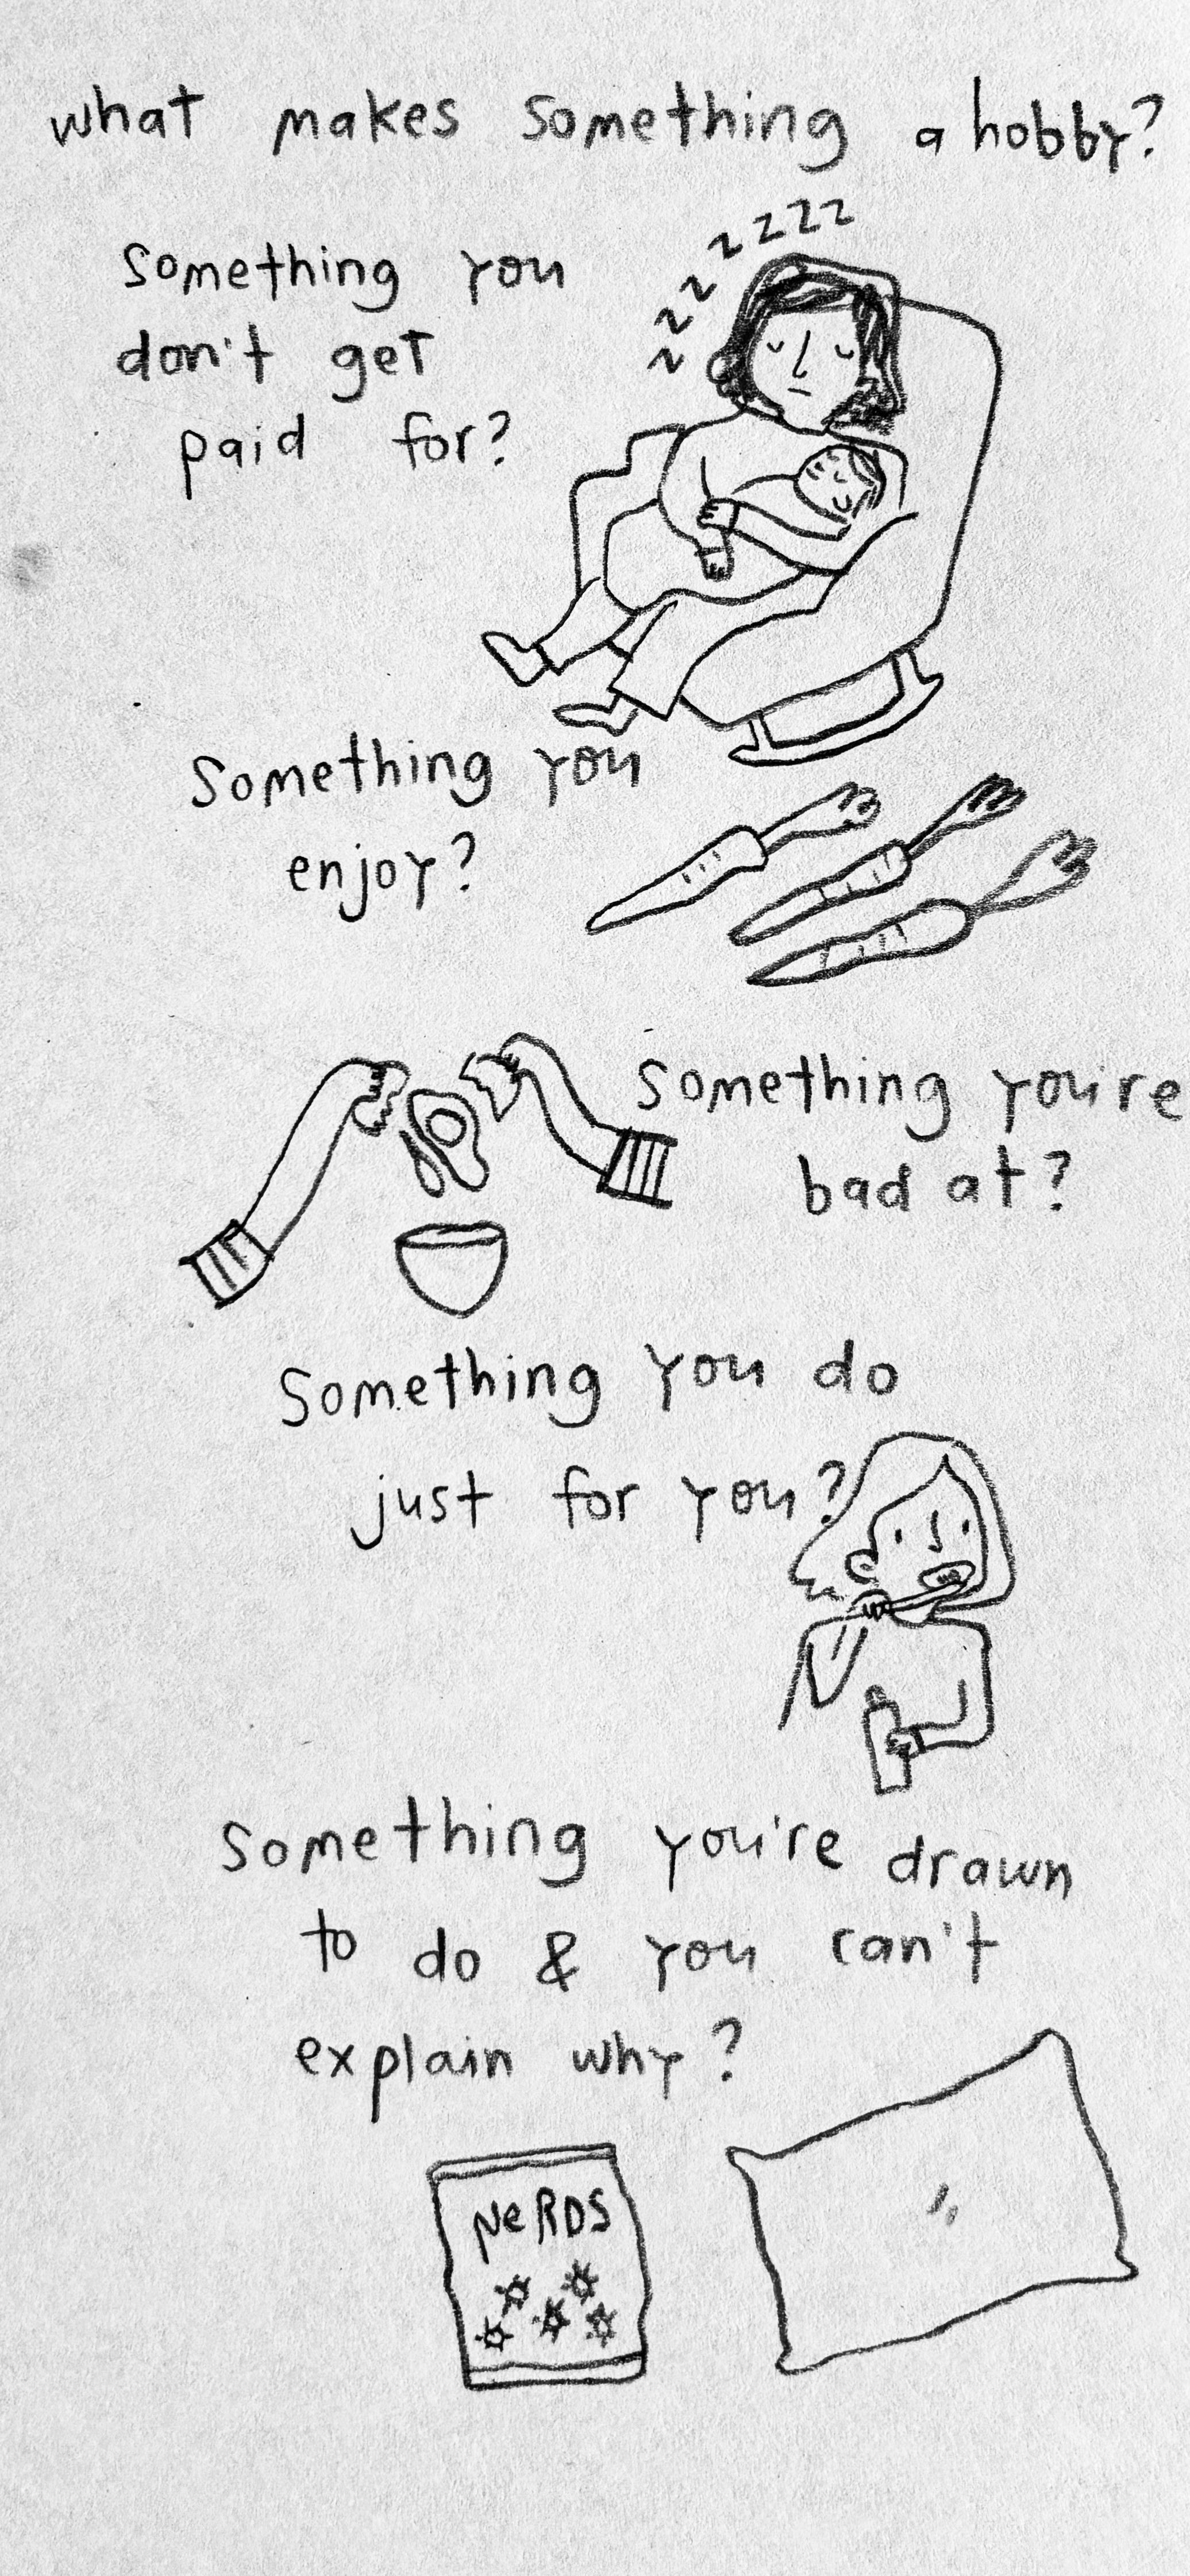 what makes something a hobby?
zzzzzzz
something you
don't get
paid for?
something you
enjoy?
something you're
bad at?
something you do
just for you?
something you're drawn
to do & you can't
explain why?
NeRDS